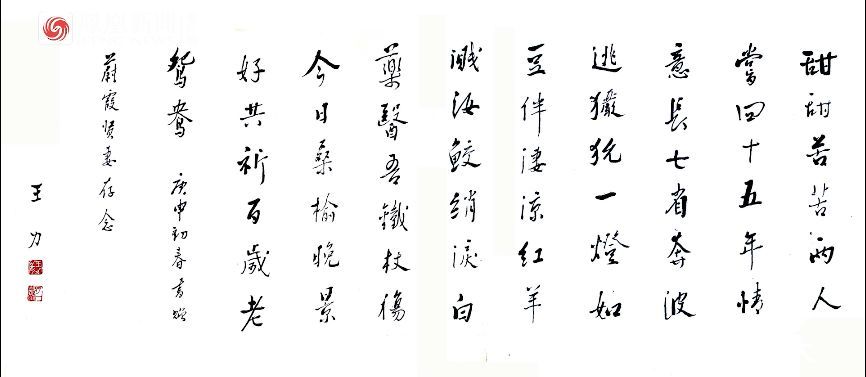 甜甜苦苦兩人
當四十五年情
意長七省奔波
逃玁狁一燈如
豆伴淒涼紅羊
濺汝鮫綃淚白
藥醫吾鐵杖傷
今日桑榆晚景
好共祈百歲老
鴛鴦 庚申初春書贈
蔚霞賢妻存念
王力